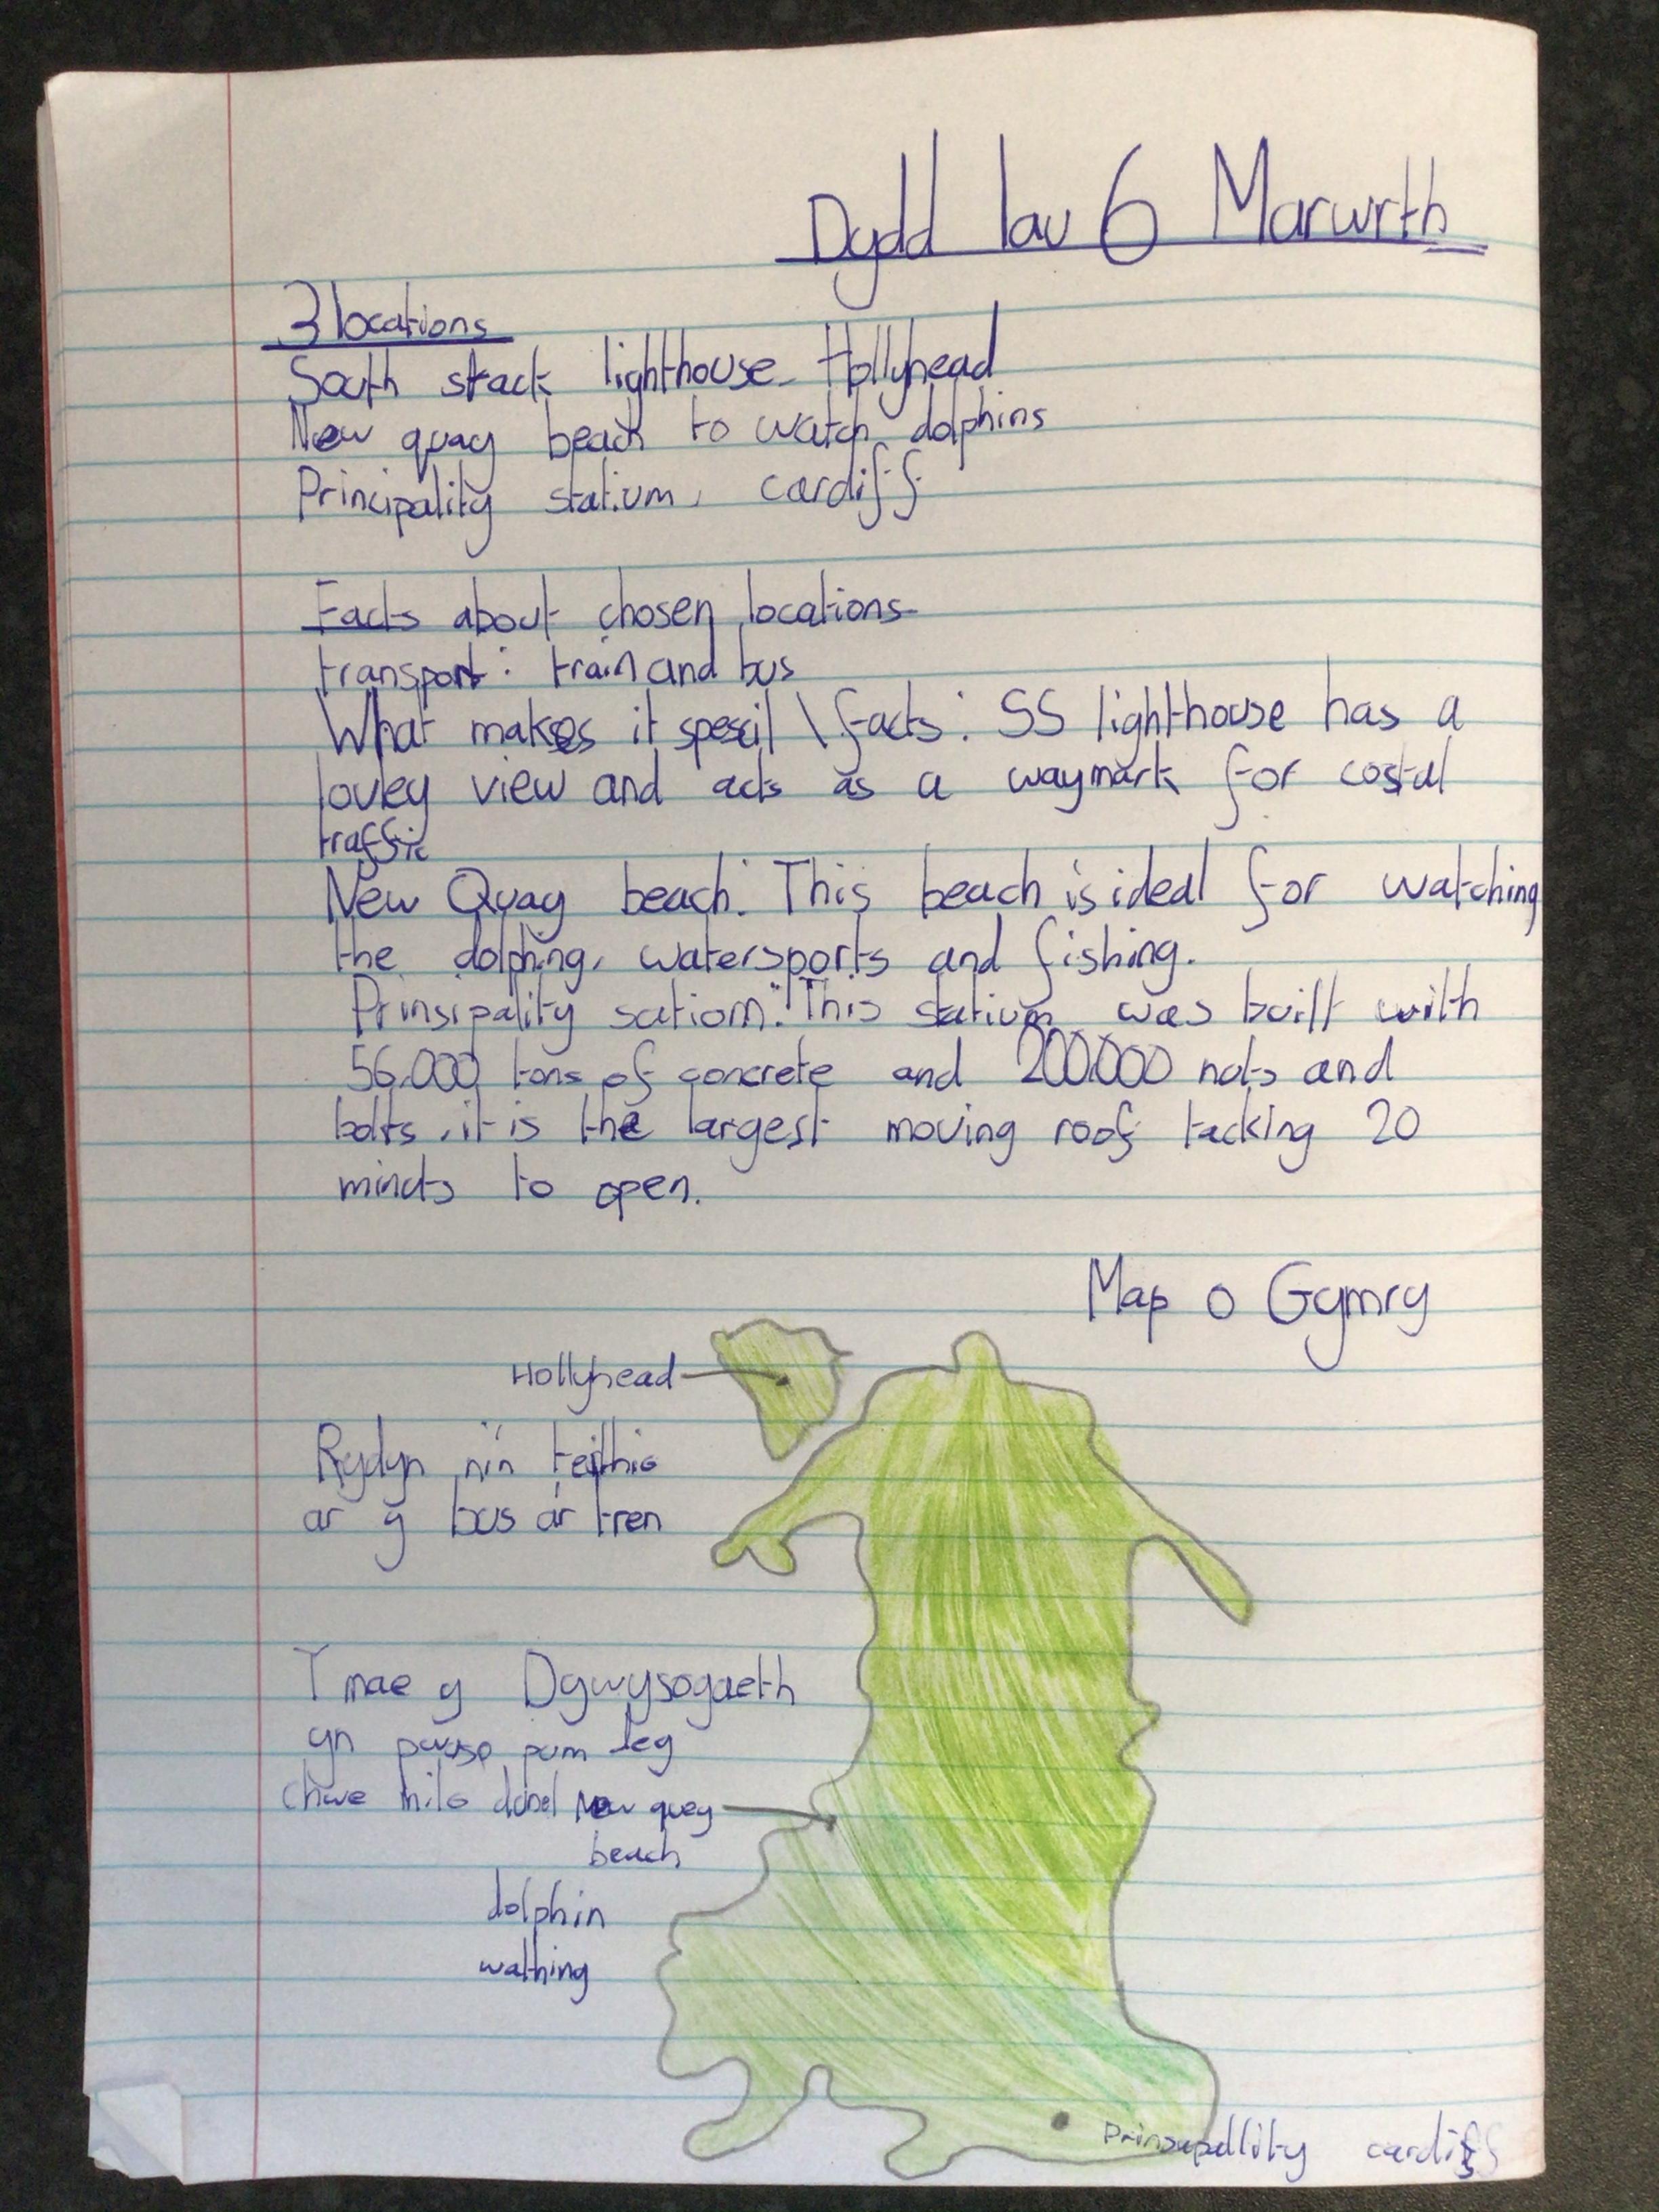 Dydd Iau 6 Marwrth
3 locations
South stack lighthouse Hollyhead
New quay beach to watch dolphins
Principality statium, cardiff
Facts about chosen locations
transport: train and bus
What makes it specil \ facts: SS lighthouse has a
lovley view and acts as a waymark for costal
traffic
New Quay beach. This beach is ideal for watching
the dolphing, watersports and fishing.
Prinsipality sationm: This statium was built with
56.000 tons of concrete and 200.000 nuts and
bolts, it is the largest moving roof tacking 20
minuts to open.
Map o Gymry
Hollyhead
Rydyn ni'n teithio
ar y bus a'r tren
Y mae y Dywysogaeth
yn pwyso pum deg
chwe milo dunel
New quey
beach
dolphin
wathing
Prinsapallity cardiff